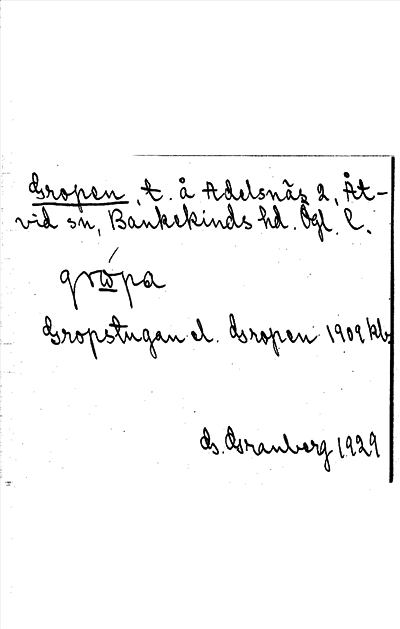 Gropen, t. å Adelsnäs 2, Åt-
vid sn, Bankekinds hd. Ögl. l.
grώ̲pa
Gropstugan el. Gropen 1909 kb
G. Granberg 1929